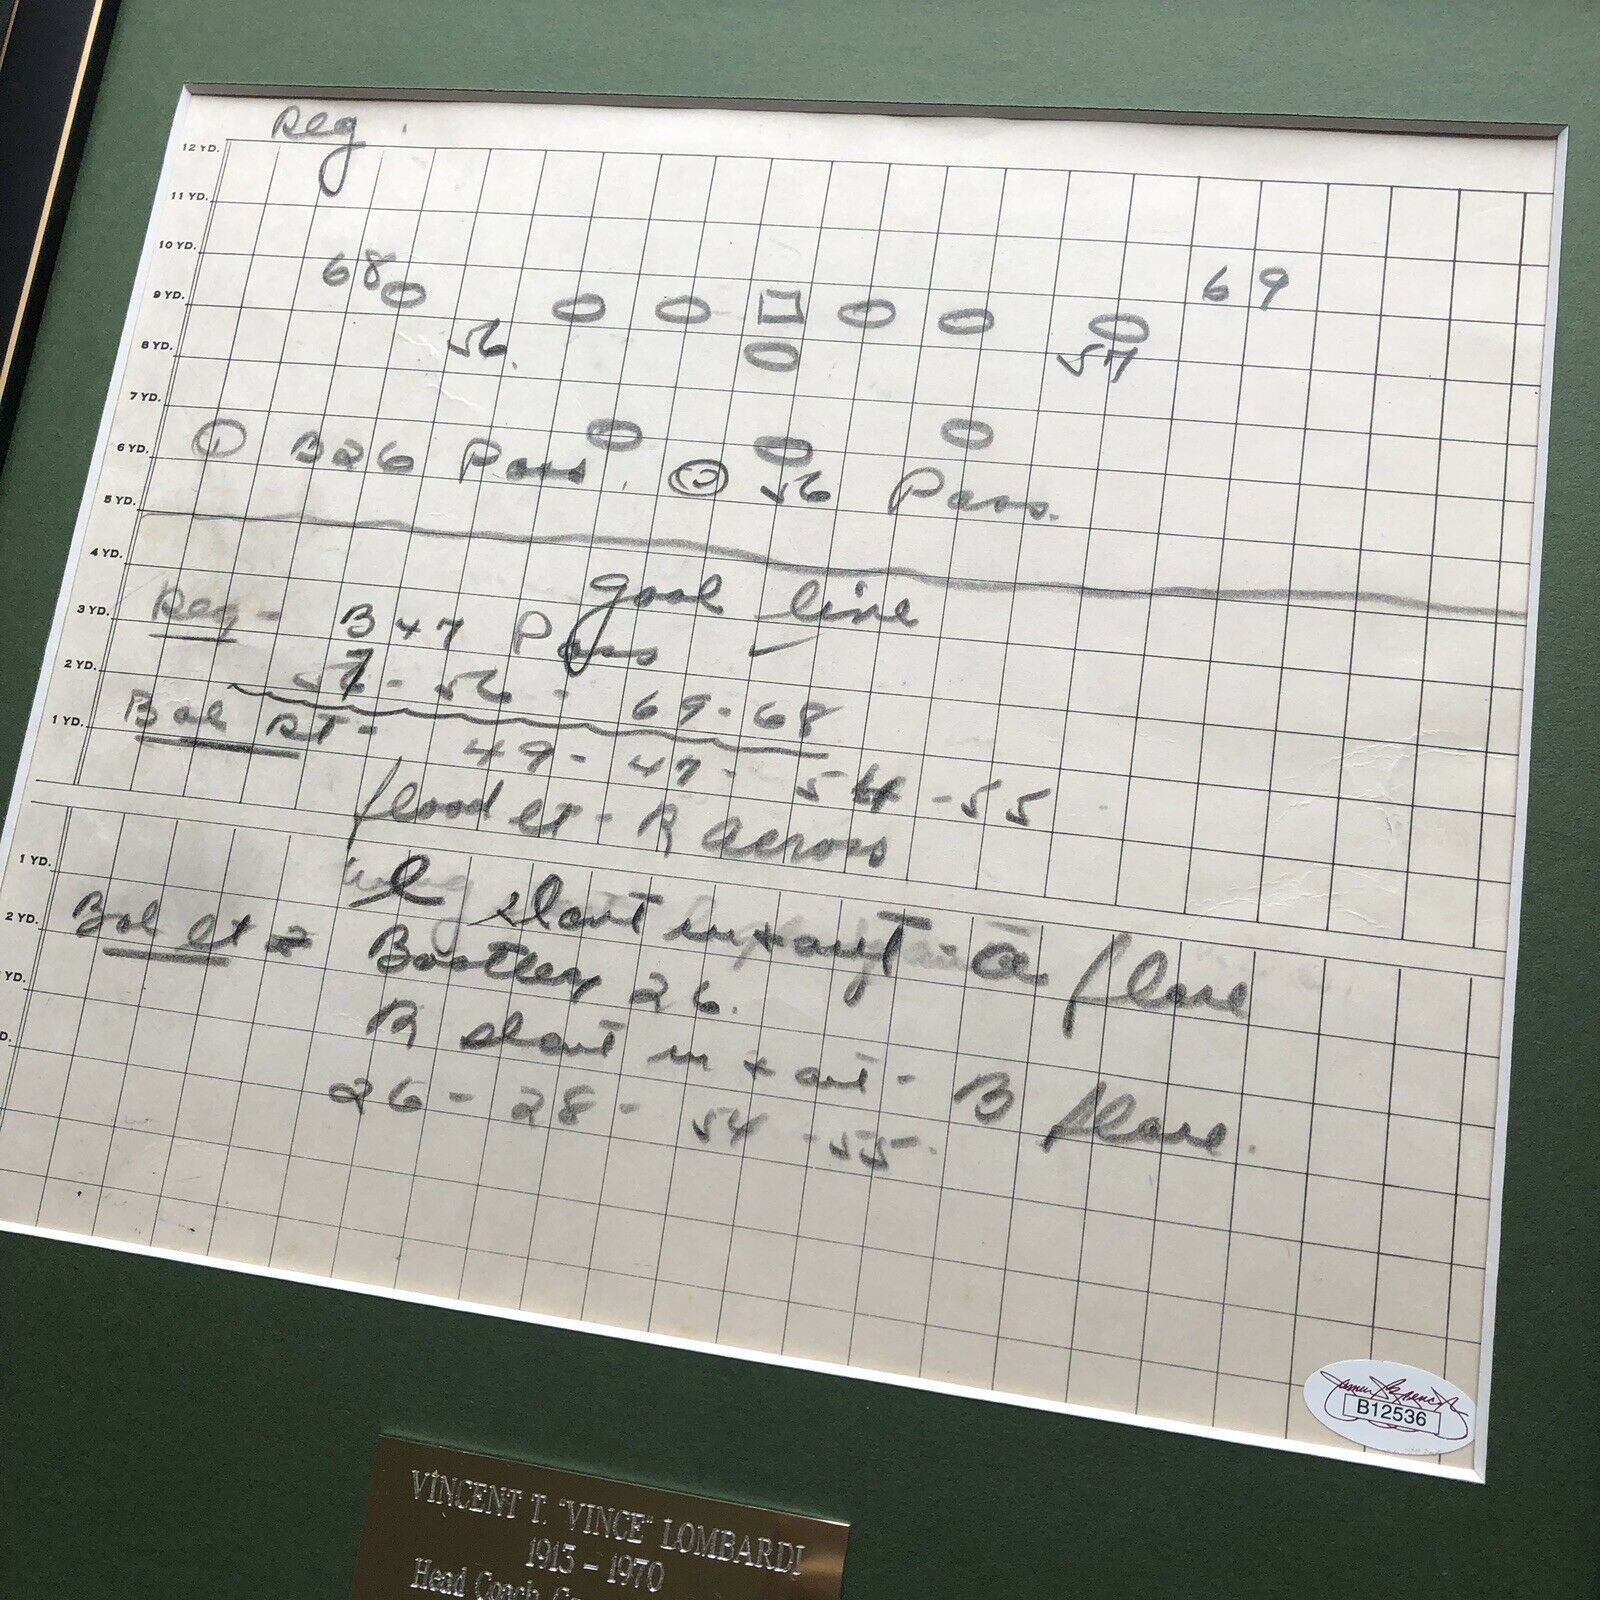 Reg.
12 YD.
11 YD.
10 YD.
68 69
9 YD.
56. 57
8 YD.
7 YD.
6 YD.
① B26 Pass. ② 56 Pass.
5 YD.
4 YD.
goal line
3 YD.
Reg - B47 Pass
2 YD.
57 - 56 - 69 - 68
1 YD.
Bal RT - 49 - 47 - 54 - 55
flood lt - R across
1 YD.
L slant in + out - flare
2 YD.
Bal lt = Bootleg 26.
YD.
R slant in + out - B flare.
D.
26 - 28 - 54 - 55.
B12536
VINCENT T. "VINCE" LOMBARDI
1913 - 1970
Head Coach